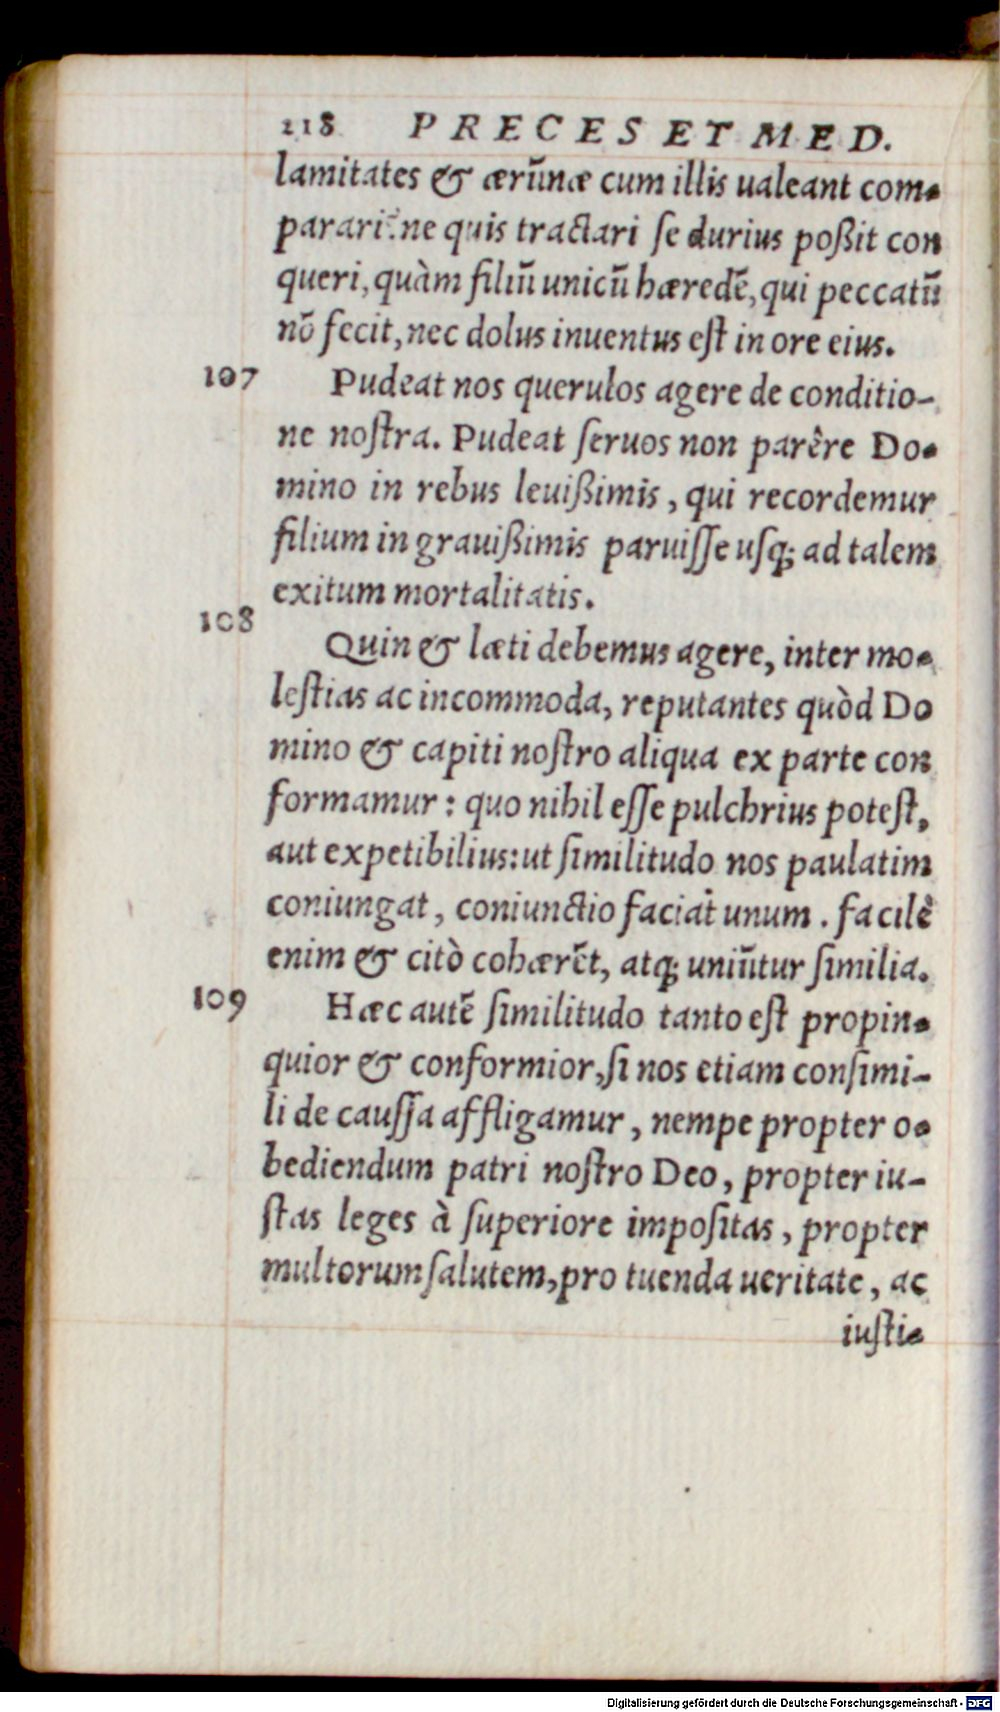 218 PRECES ET MED.
lamitates & ærũnæ cum illis ualeant com-
parari: ne quis tractari se durius poßit con
queri, quàm filiũ unicũ hæredẽ, qui peccatũ
nõ fecit, nec dolus inuentus est in ore eius.
107 Pudeat nos querulos agere de conditio-
ne nostra. Pudeat seruos non parêre Do-
mino in rebus leuißimis, qui recordemur
filium in grauißimis paruisse usq; ad talem
exitum mortalitatis.
108 Quin & læti debemus agere, inter mo-
lestias ac incommoda, reputantes quòd Do
mino & capiti nostro aliqua ex parte con
formamur: quo nihil esse pulchrius potest,
aut expetibilius: ut similitudo nos paulatim
coniungat, coniunctio faciat unum. facilè
enim & citò cohærẽt, atq; uniũtur similia.
109 Hæc autẽ similitudo tanto est propin-
quior & conformior, si nos etiam consimi-
li de caussa affligamur, nempe propter o-
bediendum patri nostro Deo, propter iu-
stas leges à superiore impositas, propter
multorum salutem, pro tuenda ueritate, ac
iusti-
Digitalisierung gefördert durch die Deutsche Forschungsgemeinschaft - DFG